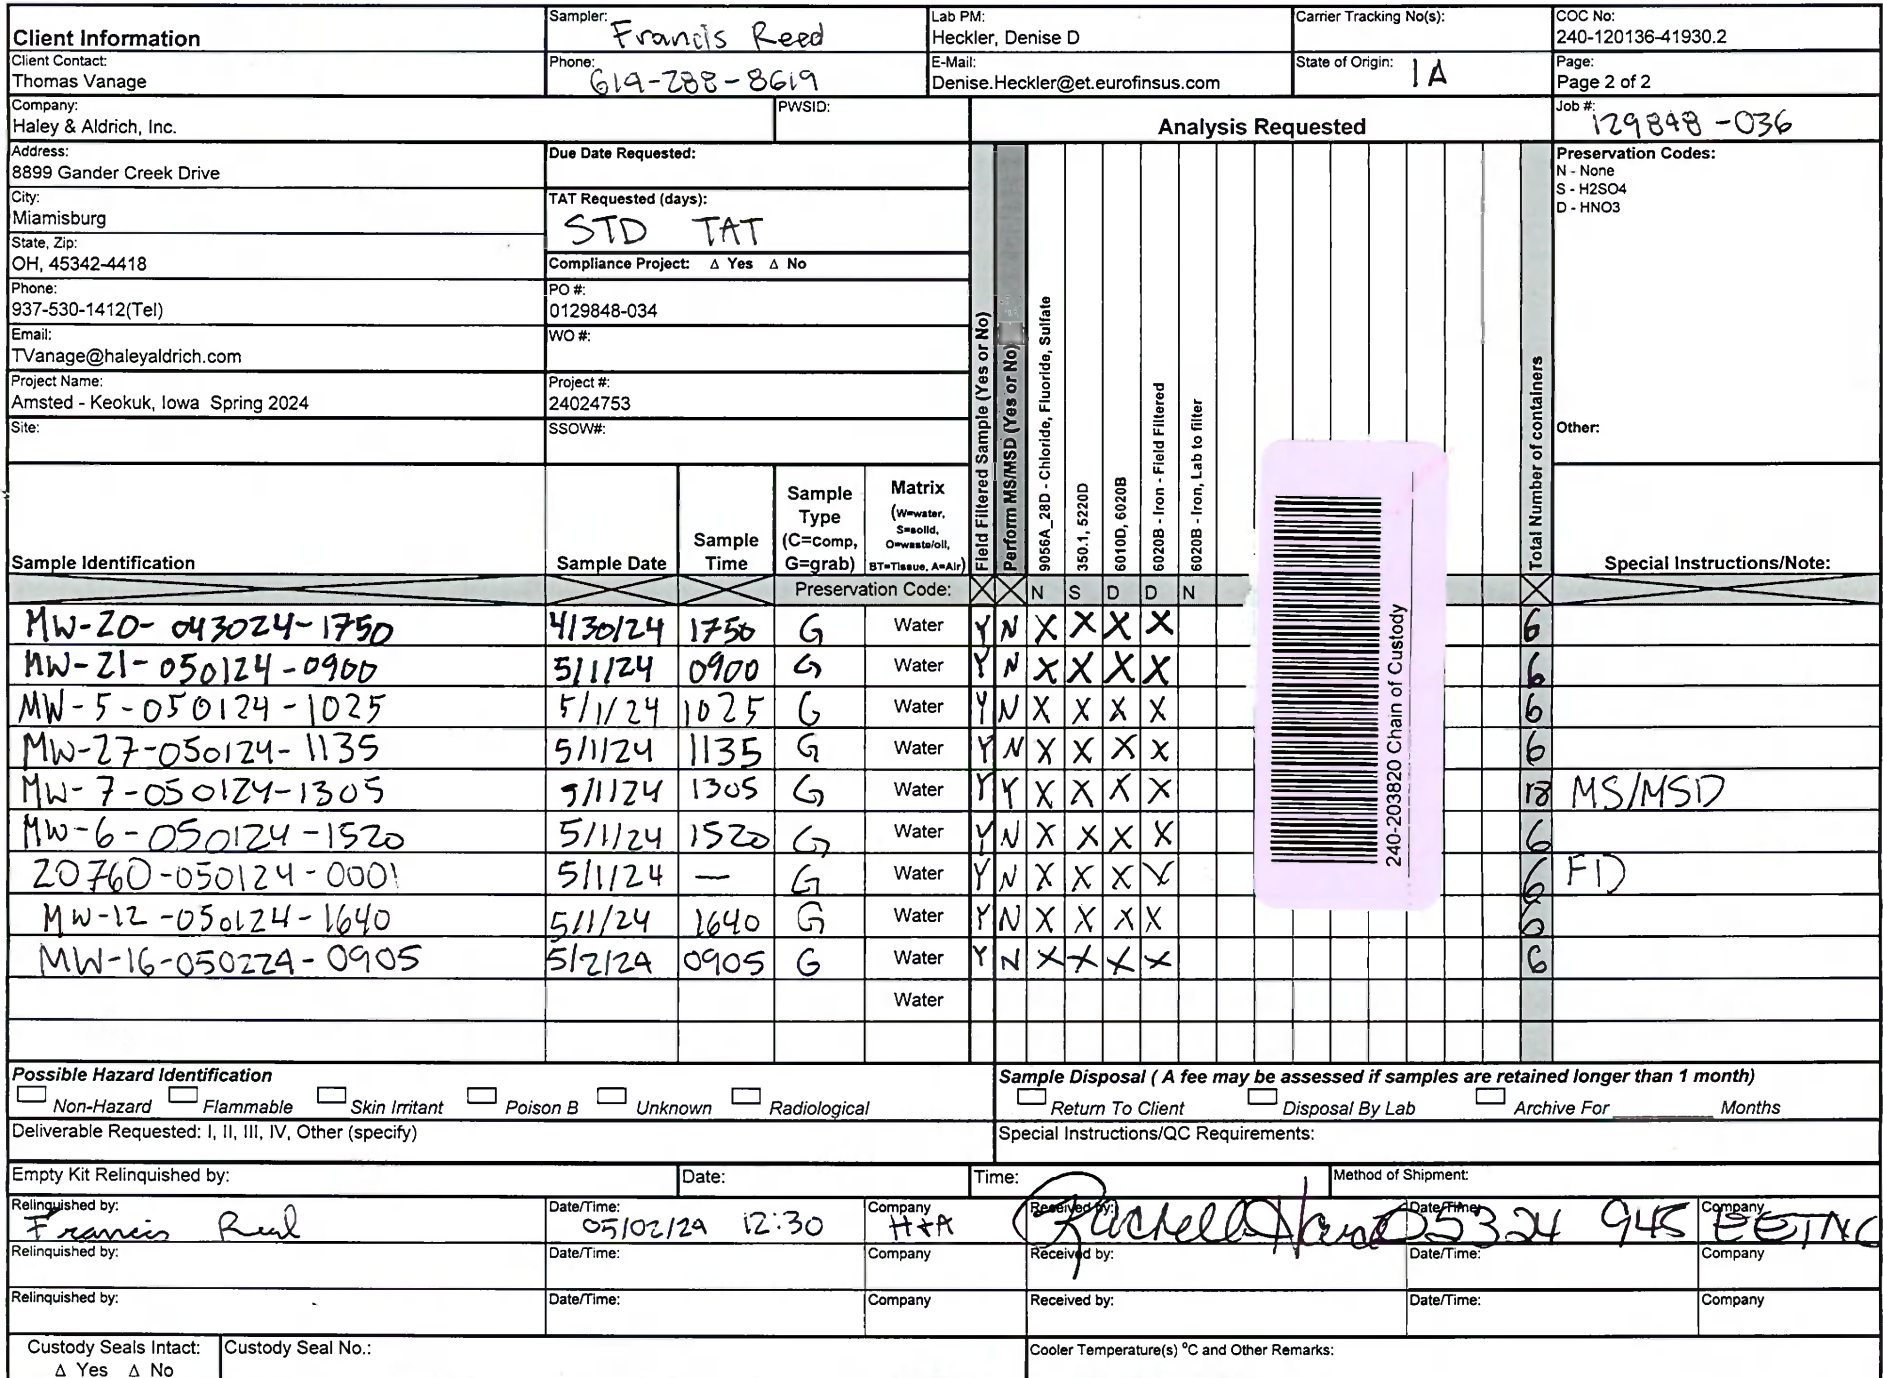 Client Information
Sampler: Francis Reed
Lab PM:
Heckler, Denise D
Carrier Tracking No(s):
COC No:
240-120136-41930.2
Client Contact:
Thomas Vanage
Phone: 614-288-8619
E-Mail:
Denise.Heckler@et.eurofinsus.com
State of Origin: IA
Page:
Page 2 of 2
Company:
Haley & Aldrich, Inc.
PWSID:
Analysis Requested
Job #: 129848-036
Address:
8899 Gander Creek Drive
Due Date Requested:
City:
Miamisburg
TAT Requested (days):
STD TAT
State, Zip:
OH, 45342-4418
Compliance Project: Δ Yes Δ No
Phone:
937-530-1412(Tel)
PO #:
0129848-034
Email:
TVanage@haleyaldrich.com
WO #:
Project Name:
Amsted - Keokuk, Iowa Spring 2024
Project #:
24024753
Site:
SSOW#:
Preservation Codes:
N - None
S - H2SO4
D - HNO3
Other:
Sample Identification
Sample Date
Sample Time
Sample Type (C=comp, G=grab)
Matrix (W=water, S=solid, O=waste/oil, BT=Tissue, A=Air)
Field Filtered Sample (Yes or No)
Perform MS/MSD (Yes or No)
9056A_28D - Chloride, Fluoride, Sulfate
350.1, 5220D
6010D, 6020B
6020B - Iron - Field Filtered
6020B - Iron, Lab to filter
Total Number of containers
Special Instructions/Note:
Preservation Code: X X N S D D N X
MW-20-043024-1750 4/30/24 1750 G Water Y N X X X X 6
MW-21-050124-0900 5/1/24 0900 G Water Y N X X X X 6
MW-5-050124-1025 5/1/24 1025 G Water Y N X X X X 6
MW-27-050124-1135 5/1/24 1135 G Water Y N X X X X 6
MW-7-050124-1305 5/1/24 1305 G Water Y Y X X X X 18 MS/MSD
MW-6-050124-1520 5/1/24 1520 G Water Y N X X X X 6
20760-050124-0001 5/1/24 — G Water Y N X X X X 6 FD
MW-12-050124-1640 5/1/24 1640 G Water Y N X X X X 6
MW-16-050224-0905 5/2/24 0905 G Water Y N X X X X 6
Water
240-203820 Chain of Custody
Possible Hazard Identification
Non-Hazard Flammable Skin Irritant Poison B Unknown Radiological
Sample Disposal ( A fee may be assessed if samples are retained longer than 1 month)
Return To Client Disposal By Lab Archive For Months
Deliverable Requested: I, II, III, IV, Other (specify)
Special Instructions/QC Requirements:
Empty Kit Relinquished by:
Date:
Time:
Method of Shipment:
Relinquished by: Francis Reed
Date/Time: 05/02/24 12:30
Company H+A
Received by: Rachelle
Date/Time: 5324 945
Company EETNC
Relinquished by:
Date/Time:
Company
Received by:
Date/Time:
Company
Relinquished by:
Date/Time:
Company
Received by:
Date/Time:
Company
Custody Seals Intact:
Δ Yes Δ No
Custody Seal No.:
Cooler Temperature(s) °C and Other Remarks: